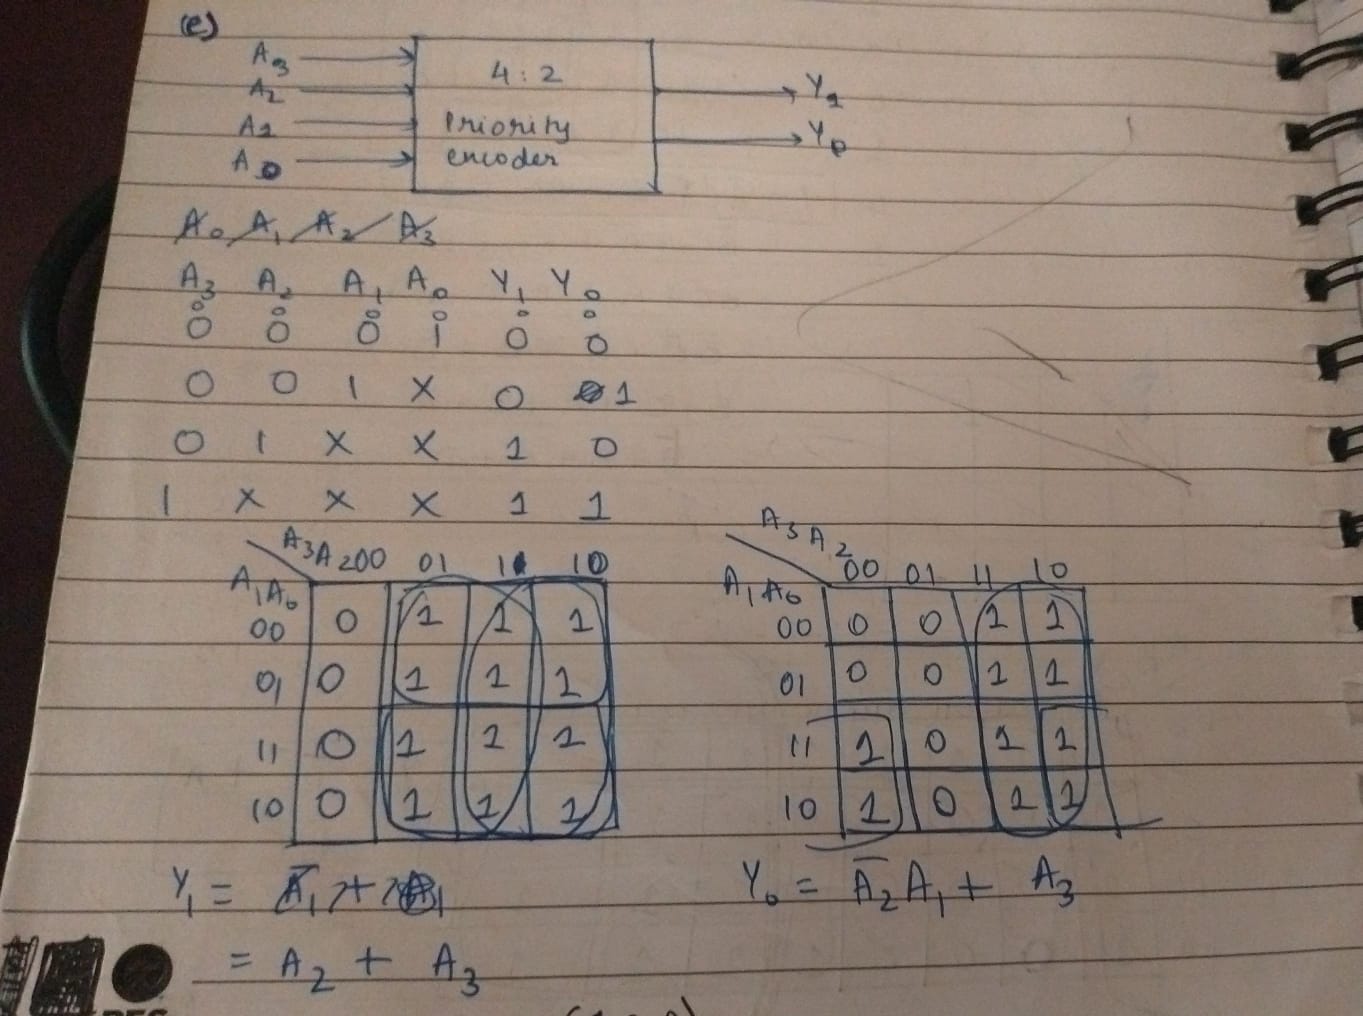 (e)
A3
A2
A1
A0
4:2
Priority
encoder
Y1
Y0
A0 A1 A2 A3
A3 A2 A1 A0 Y1 Y0
0 0 0 1 0 0
0 0 1 X 0 1
0 1 X X 1 0
1 X X X 1 1
A3A2 00 01 11 10
A1A0
00 0 1 1 1
01 0 1 1 1
11 0 1 1 1
10 0 1 1 1
A3A2
00 01 11 10
A1A0
00 0 0 1 1
01 0 0 1 1
11 1 0 1 1
10 1 0 1 1
Y1 = A̅1 +
= A2 + A3
Y0 = A̅2 A1 + A3